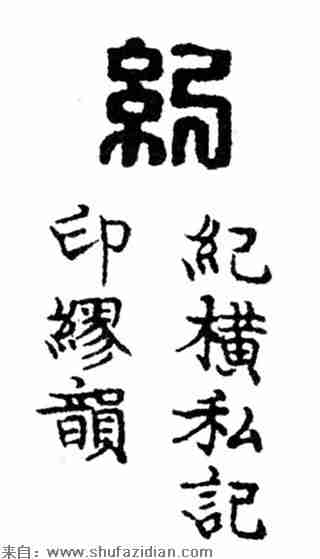 紀
紀橫私記
印繆韻
来自：www.shufazidian.com